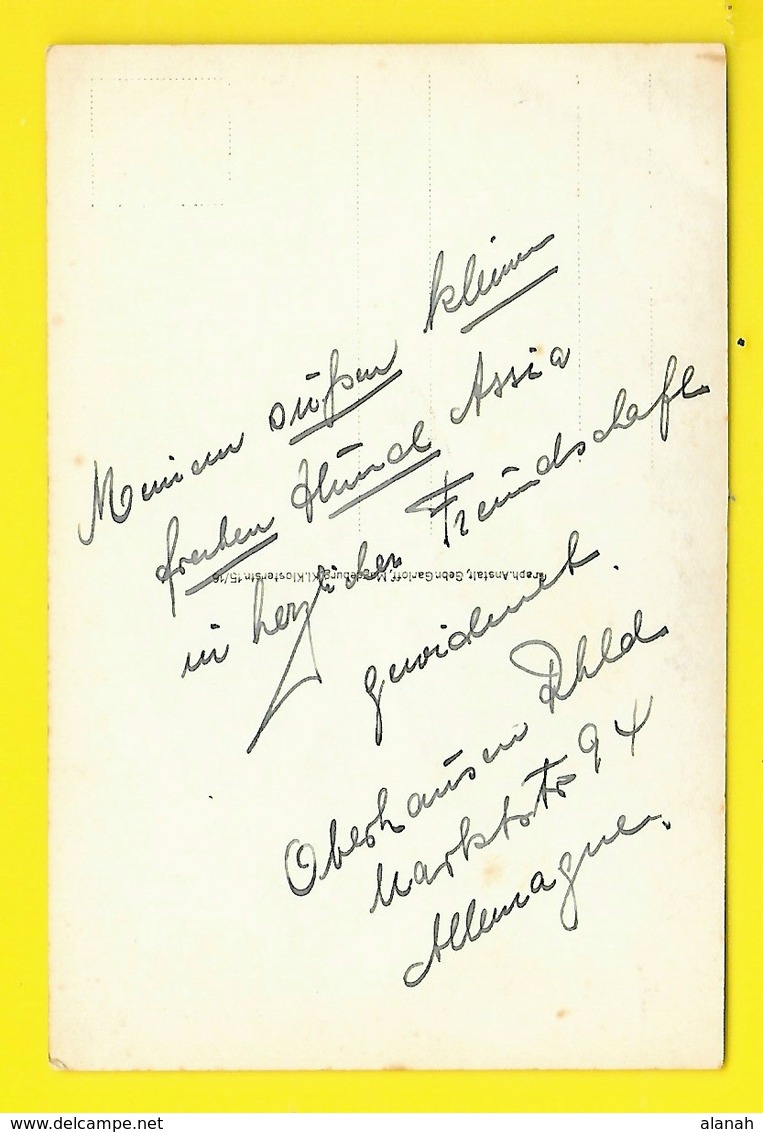 Meinem süßen kleinen
frechen Hund Assia
in herzlicher Freundschaft
gewidmet.
Oberhausen Rhld.
Marktstr. 94
Allemagne.
Graph.Anstalt, Gebr.Garloff, Magdeburg, Kl.Klosterstr.15/16
alanah